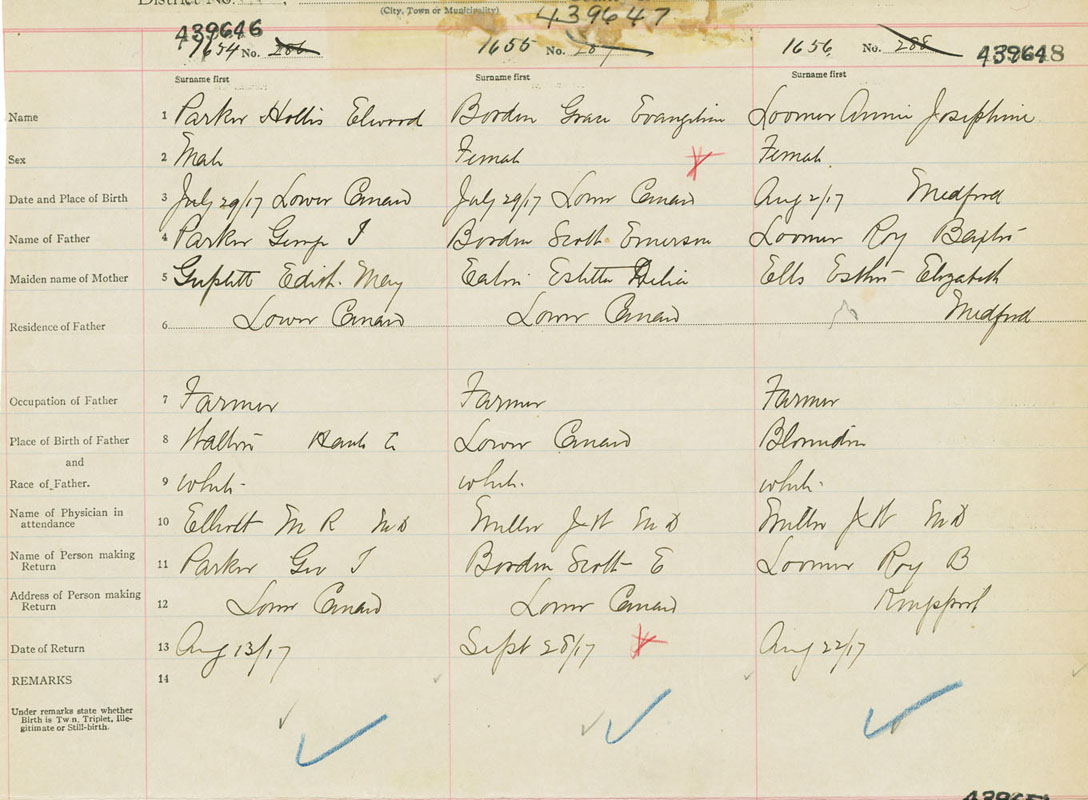 District No.
(City, Town or Municipality)
439647
439646
1654 No. 286
1655 No. 287
1656 No. 288
439648
Surname first Surname first Surname first
Name 1 Parker Hollis Elwood Borden Grace Evangeline Loomer Annie Josephine
Sex 2 Male Female Female
Date and Place of Birth 3 July 29/17 Lower Canard July 29/17 Lower Canard Aug 2/17 Medford
Name of Father 4 Parker George I Borden Scott Emerson Loomer Roy Baxter
Maiden name of Mother 5 Edith May Eaton Estella Delia Ells Esther Elizabeth
Residence of Father 6 Lower Canard Lower Canard Medford
Occupation of Father 7 Farmer Farmer Farmer
Place of Birth of Father 8 Walton Hants Co Lower Canard Blomidon
and
Race of Father. 9 white white white
Name of Physician in attendance 10 Elliott M R MD Miller MD Miller MD
Name of Person making Return 11 Parker Geo I Borden Scott E Loomer Roy B
Address of Person making Return 12 Lower Canard Lower Canard Kingsport
Date of Return 13 Aug 13/17 Sept 28/17 Aug 22/17
REMARKS 14
Under remarks state whether
Birth is Twin, Triplet, Ille-
gitimate or Still-birth.